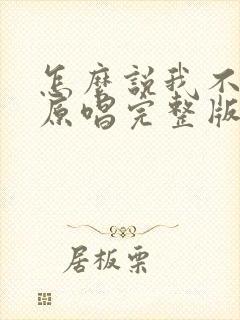 怎麼說我不
原唱完整版
居板栗